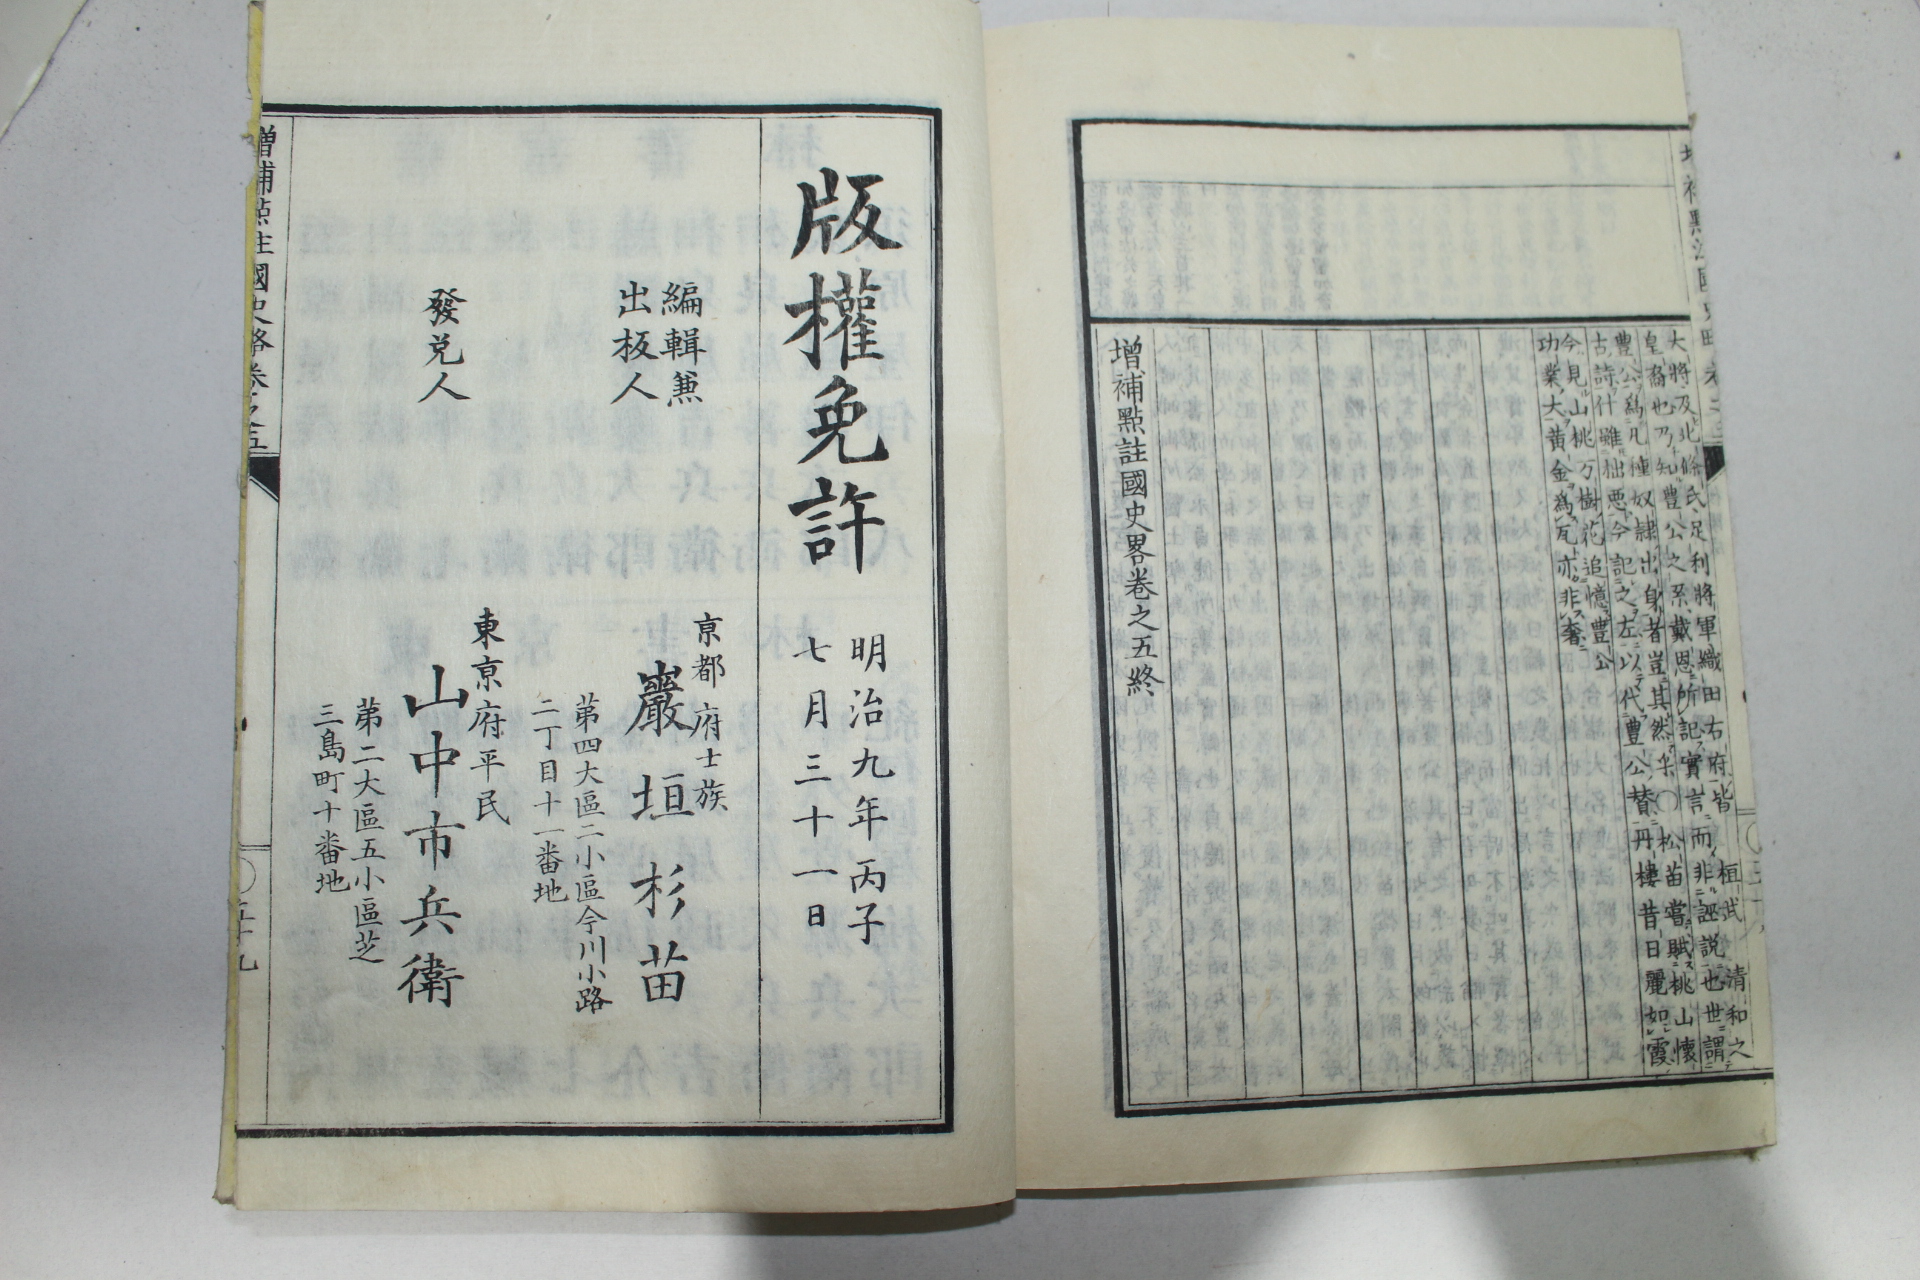 大將及北條氏足利將軍織田右府皆桓武清和之
皇裔也乃知豊公之系戴恩所記實言而非誣説也世謂
豊公爲凡種奴隷出身者豈其然乎〇松苗嘗賦桃山懷
古詩什雖拙悪今記之左以代豊公賛丹樓昔日麗如霞
今見山桃万樹花追憶豊公
功業大黄金爲瓦亦非奢
增補點註國史畧卷之五終
版權免許
明治九年丙子
七月三十一日
編輯兼
出板人
京都府士族
巖垣杉苗
第四大區二小區今川小路
二丁目十一番地
發兌人
東京府平民
山中市兵衛
第二大區五小區芝
三島町十番地
增補點註國史略卷之五
五十九